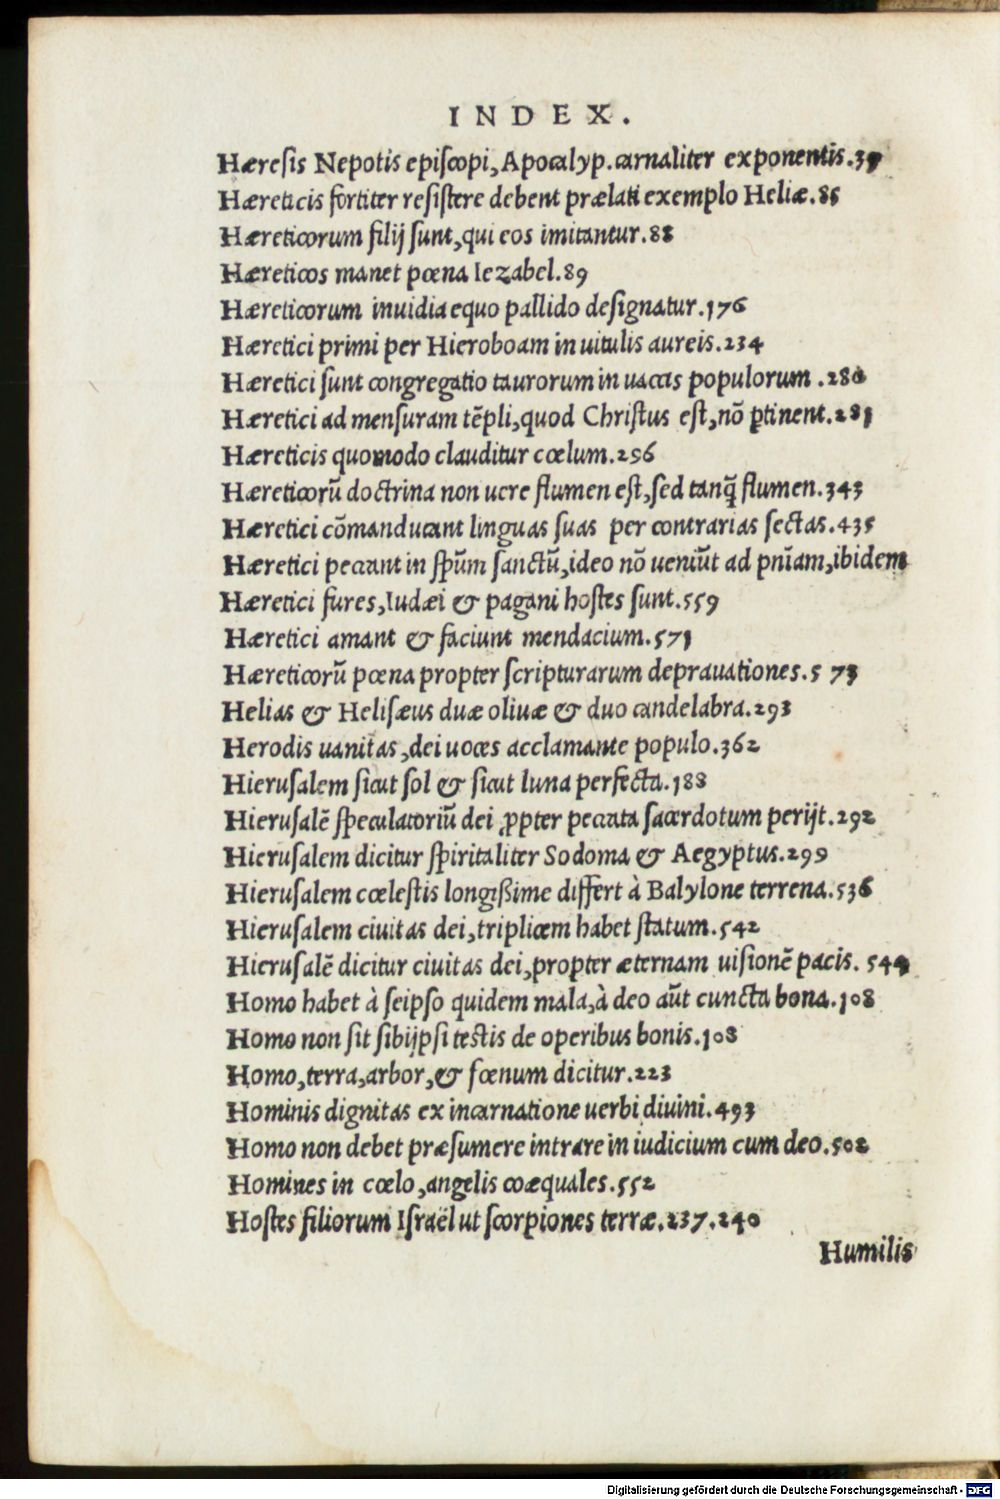 INDEX.
Hæresis Nepotis episcopi, Apocalyp. carnaliter exponentis.39
Hæreticis fortiter resistere debent prælati exemplo Heliæ.85
Hæreticorum filij sunt, qui eos imitantur.88
Hæreticos manet pœna Iezabel.89
Hæreticorum inuidia equo pallido designatur.176
Hæretici primi per Hieroboam in uitulis aureis.234
Hæretici sunt congregatio taurorum in uaccis populorum .280
Hæretici ad mensuram tẽpli, quod Christus est, nõ ꝑtinent.281
Hæreticis quomodo clauditur cœlum.296
Hæreticorũ doctrina non uere flumen est, sed tanq̃ flumen.343
Hæretici cõmanducant linguas suas per contrarias sectas.435
Hæretici peccant in spũm sanctũ, ideo nõ ueniũt ad pnĩam, ibidem
Hæretici fures, Iudæi & pagani hostes sunt.559
Hæretici amant & faciunt mendacium.571
Hæreticorũ pœna propter scripturarum deprauationes.573
Helias & Helisæus duæ oliuæ & duo candelabra.293
Herodis uanitas, dei uoces acclamante populo.362
Hierusalem sicut sol & sicut luna perfecta.188
Hierusalẽ speculatoriũ dei ꝓpter peccata sacerdotum perijt.292
Hierusalem dicitur spiritaliter Sodoma & Aegyptus.299
Hierusalem cœlestis longißime differt à Babylone terrena.536
Hierusalem ciuitas dei, triplicem habet statum.542
Hierusalẽ dicitur ciuitas dei, propter æternam uisionẽ pacis. 544
Homo habet à seipso quidem mala, à deo aũt cuncta bona.108
Homo non sit sibijpsi testis de operibus bonis.108
Homo, terra, arbor, & fœnum dicitur.223
Hominis dignitas ex incarnatione uerbi diuini.493
Homo non debet præsumere intrare in iudicium cum deo.502
Homines in cœlo, angelis coæquales.552
Hostes filiorum Israël ut scorpiones terræ.237.240
Humilis
Digitalisierung gefördert durch die Deutsche Forschungsgemeinschaft - DFG